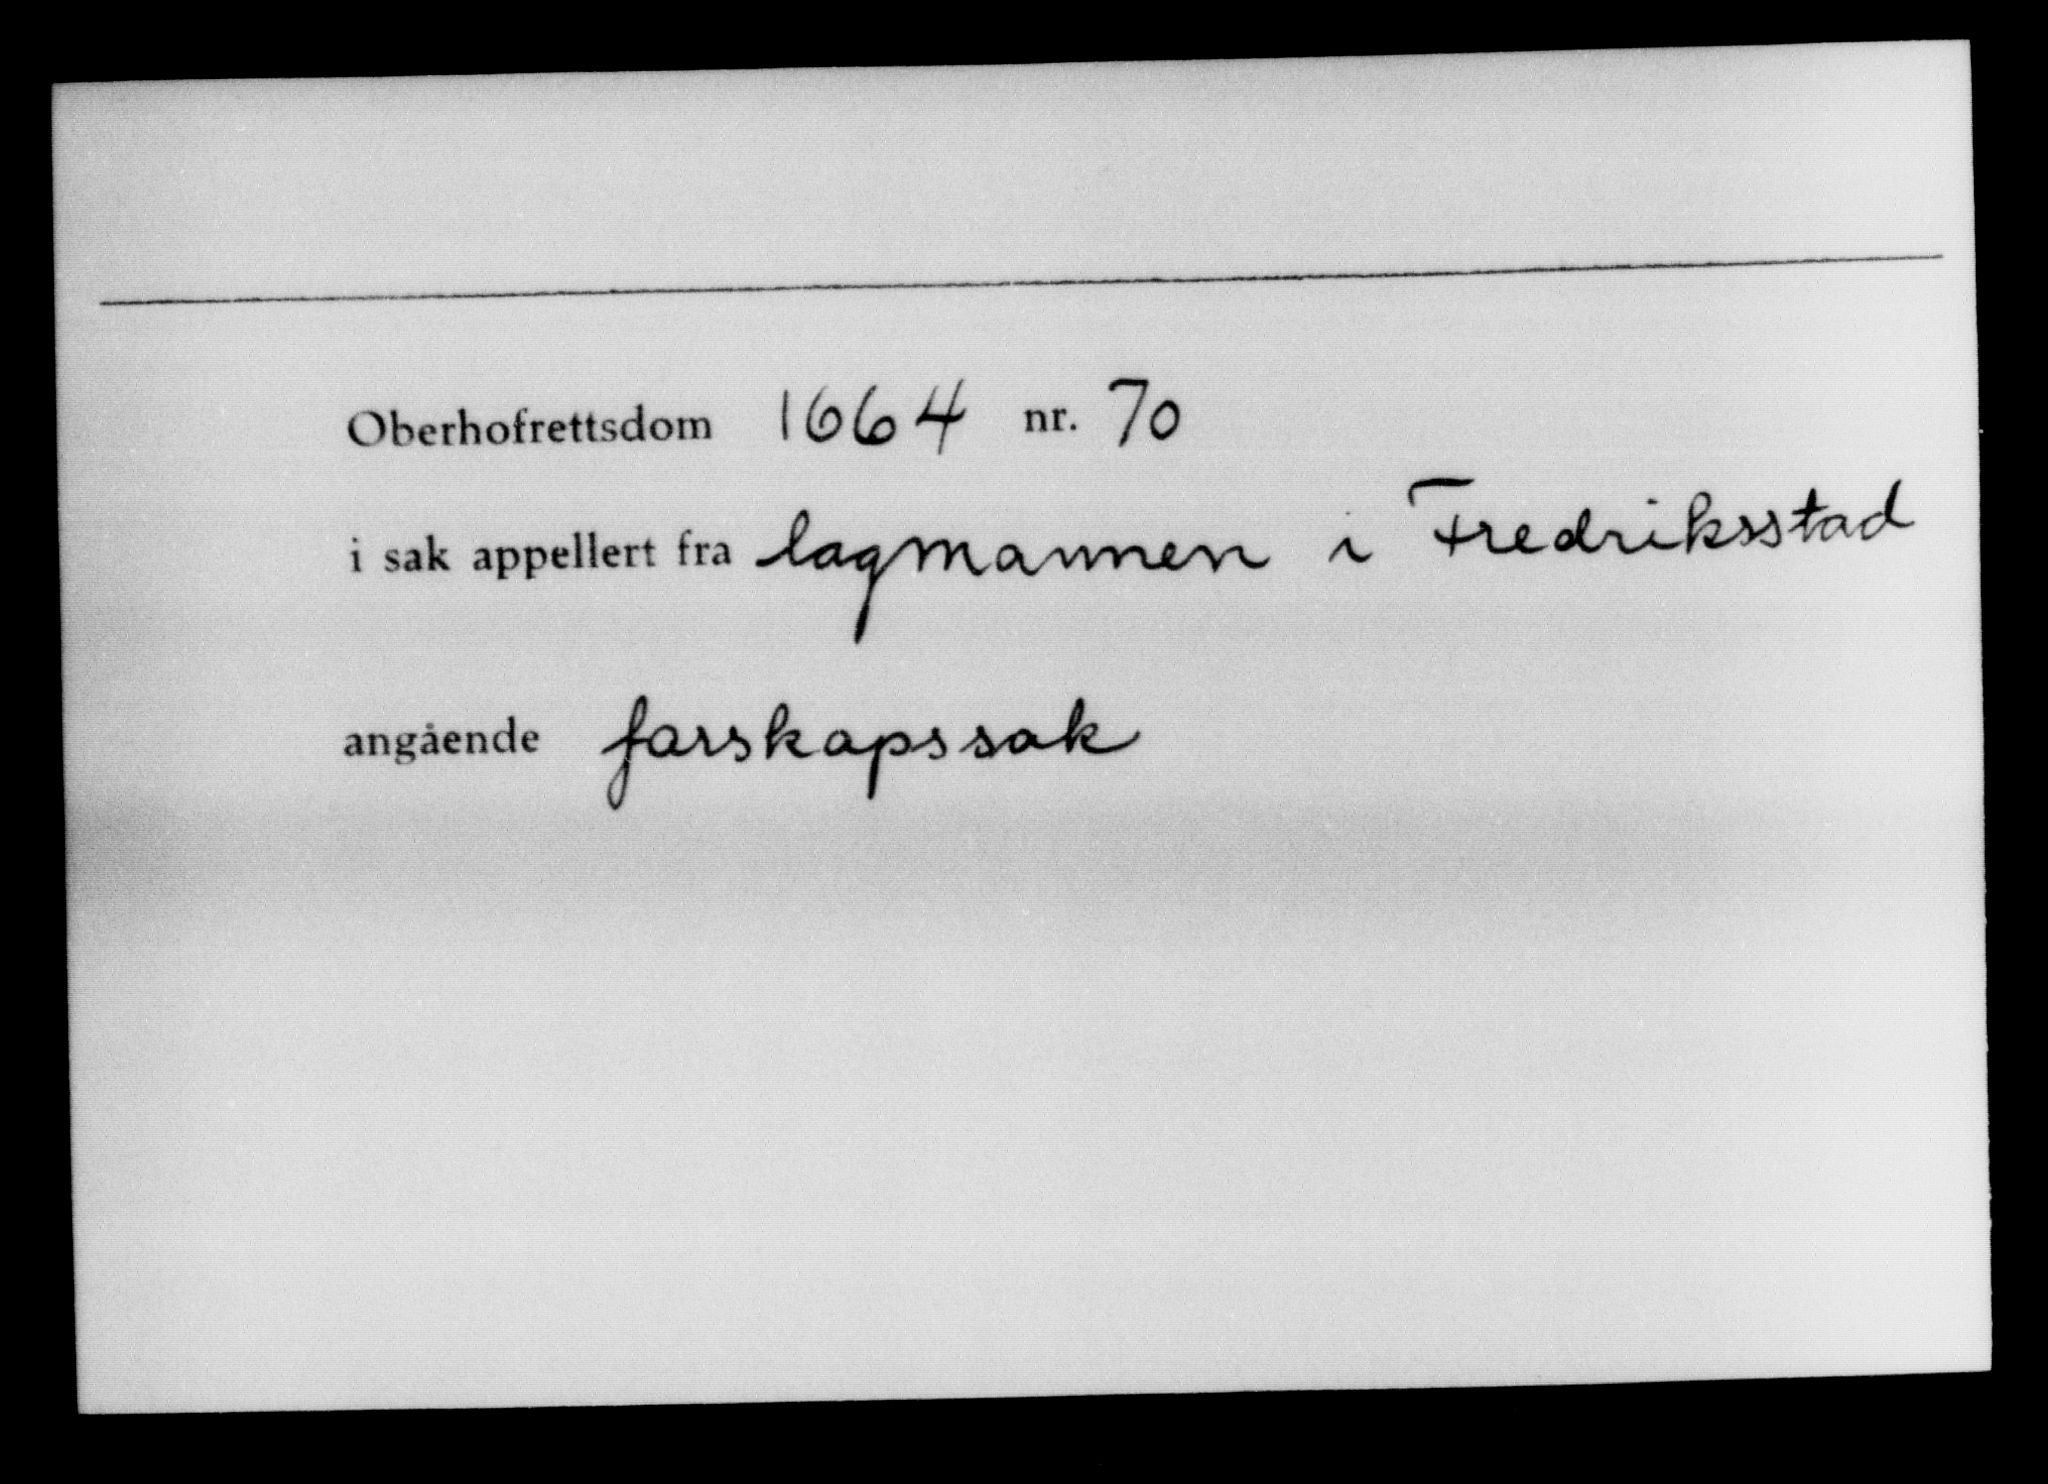 Oberhofrettsdom 1664 nr. 70
i sak appellert fra lagmannen i Fredriksstad
angående farskapssak